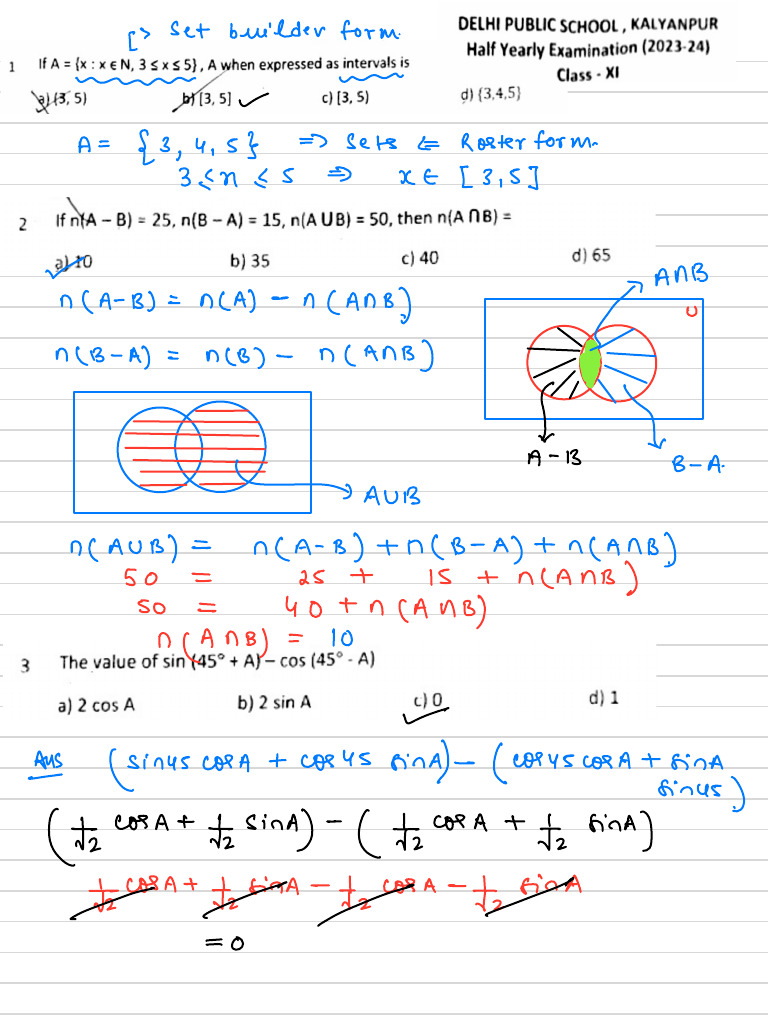 [> Set builder form.
DELHI PUBLIC SCHOOL , KALYANPUR
Half Yearly Examination (2023-24)
Class - XI
1 If A = {x : x ∈ N, 3 ≤ x ≤ 5} , A when expressed as intervals is
a) (3, 5) b) [3, 5] ✓ c) [3, 5) d) {3,4,5}
A = {3, 4, 5} ⇒ Sets ⇐ Roster form.
3 ≤ n ≤ 5 ⇒ x ∈ [3, 5]
2 If n(A – B) = 25, n(B – A) = 15, n(A ∪ B) = 50, then n(A ∩ B) =
a) 10 b) 35 c) 40 d) 65
A∩B
n(A-B) = n(A) - n(A∩B)
U
n(B-A) = n(B) - n(A∩B)
A-B
B-A.
A∪B
n(A∪B) = n(A-B) + n(B-A) + n(A∩B)
50 = 25 + 15 + n(A∩B)
50 = 40 + n(A∩B)
n(A∩B) = 10
3 The value of sin (45° + A) – cos (45° - A)
a) 2 cos A b) 2 sin A c) 0 d) 1
Ans (sin45 cosA + cos45 sinA) - (cos45 cosA + sinA
sin45)
(1/√2 cosA + 1/√2 sinA) - (1/√2 cosA + 1/√2 sinA)
1/√2 cosA + 1/√2 sinA - 1/√2 cosA - 1/√2 sinA
= 0